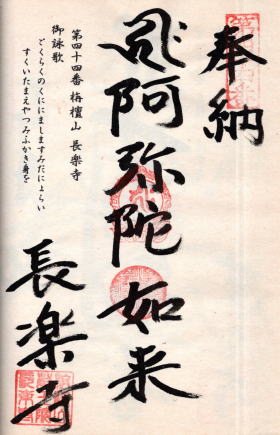 奉納
阿弥陀如来
第四十四番 栴檀山 長楽寺
御詠歌
ごくらくのくににましますみだによらい
すくいたまえやつみふかき身を
長楽寺